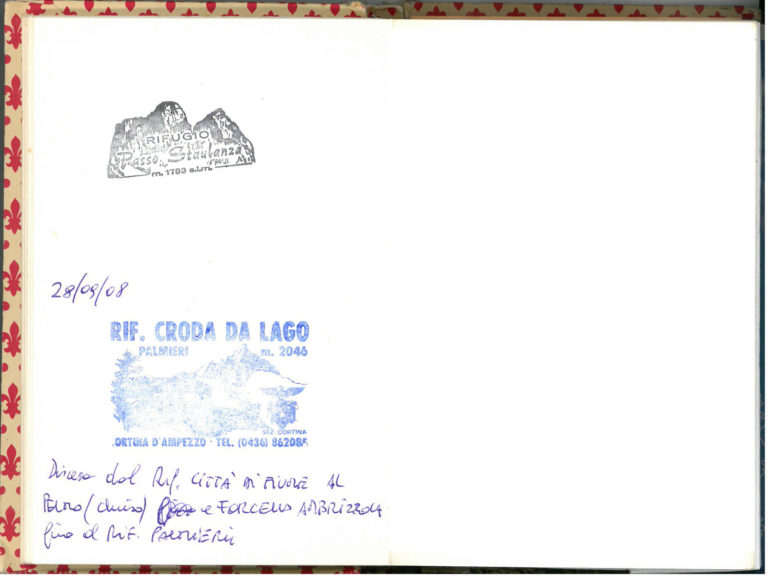 RIFUGIO
Passo Staulanza
m. 1783 s.l.m.
28/09/08
RIF. CRODA DA LAGO
PALMIERI m. 2046
SEZ. CORTINA
CORTINA D'AMPEZZO - TEL. (0436) 862085
Discesa dal Rif. CITTÀ DI FIUME AL
PELMO (chiuso) e FORCELLA AMBRIZZOLA
fino al RIF. PALMIERI